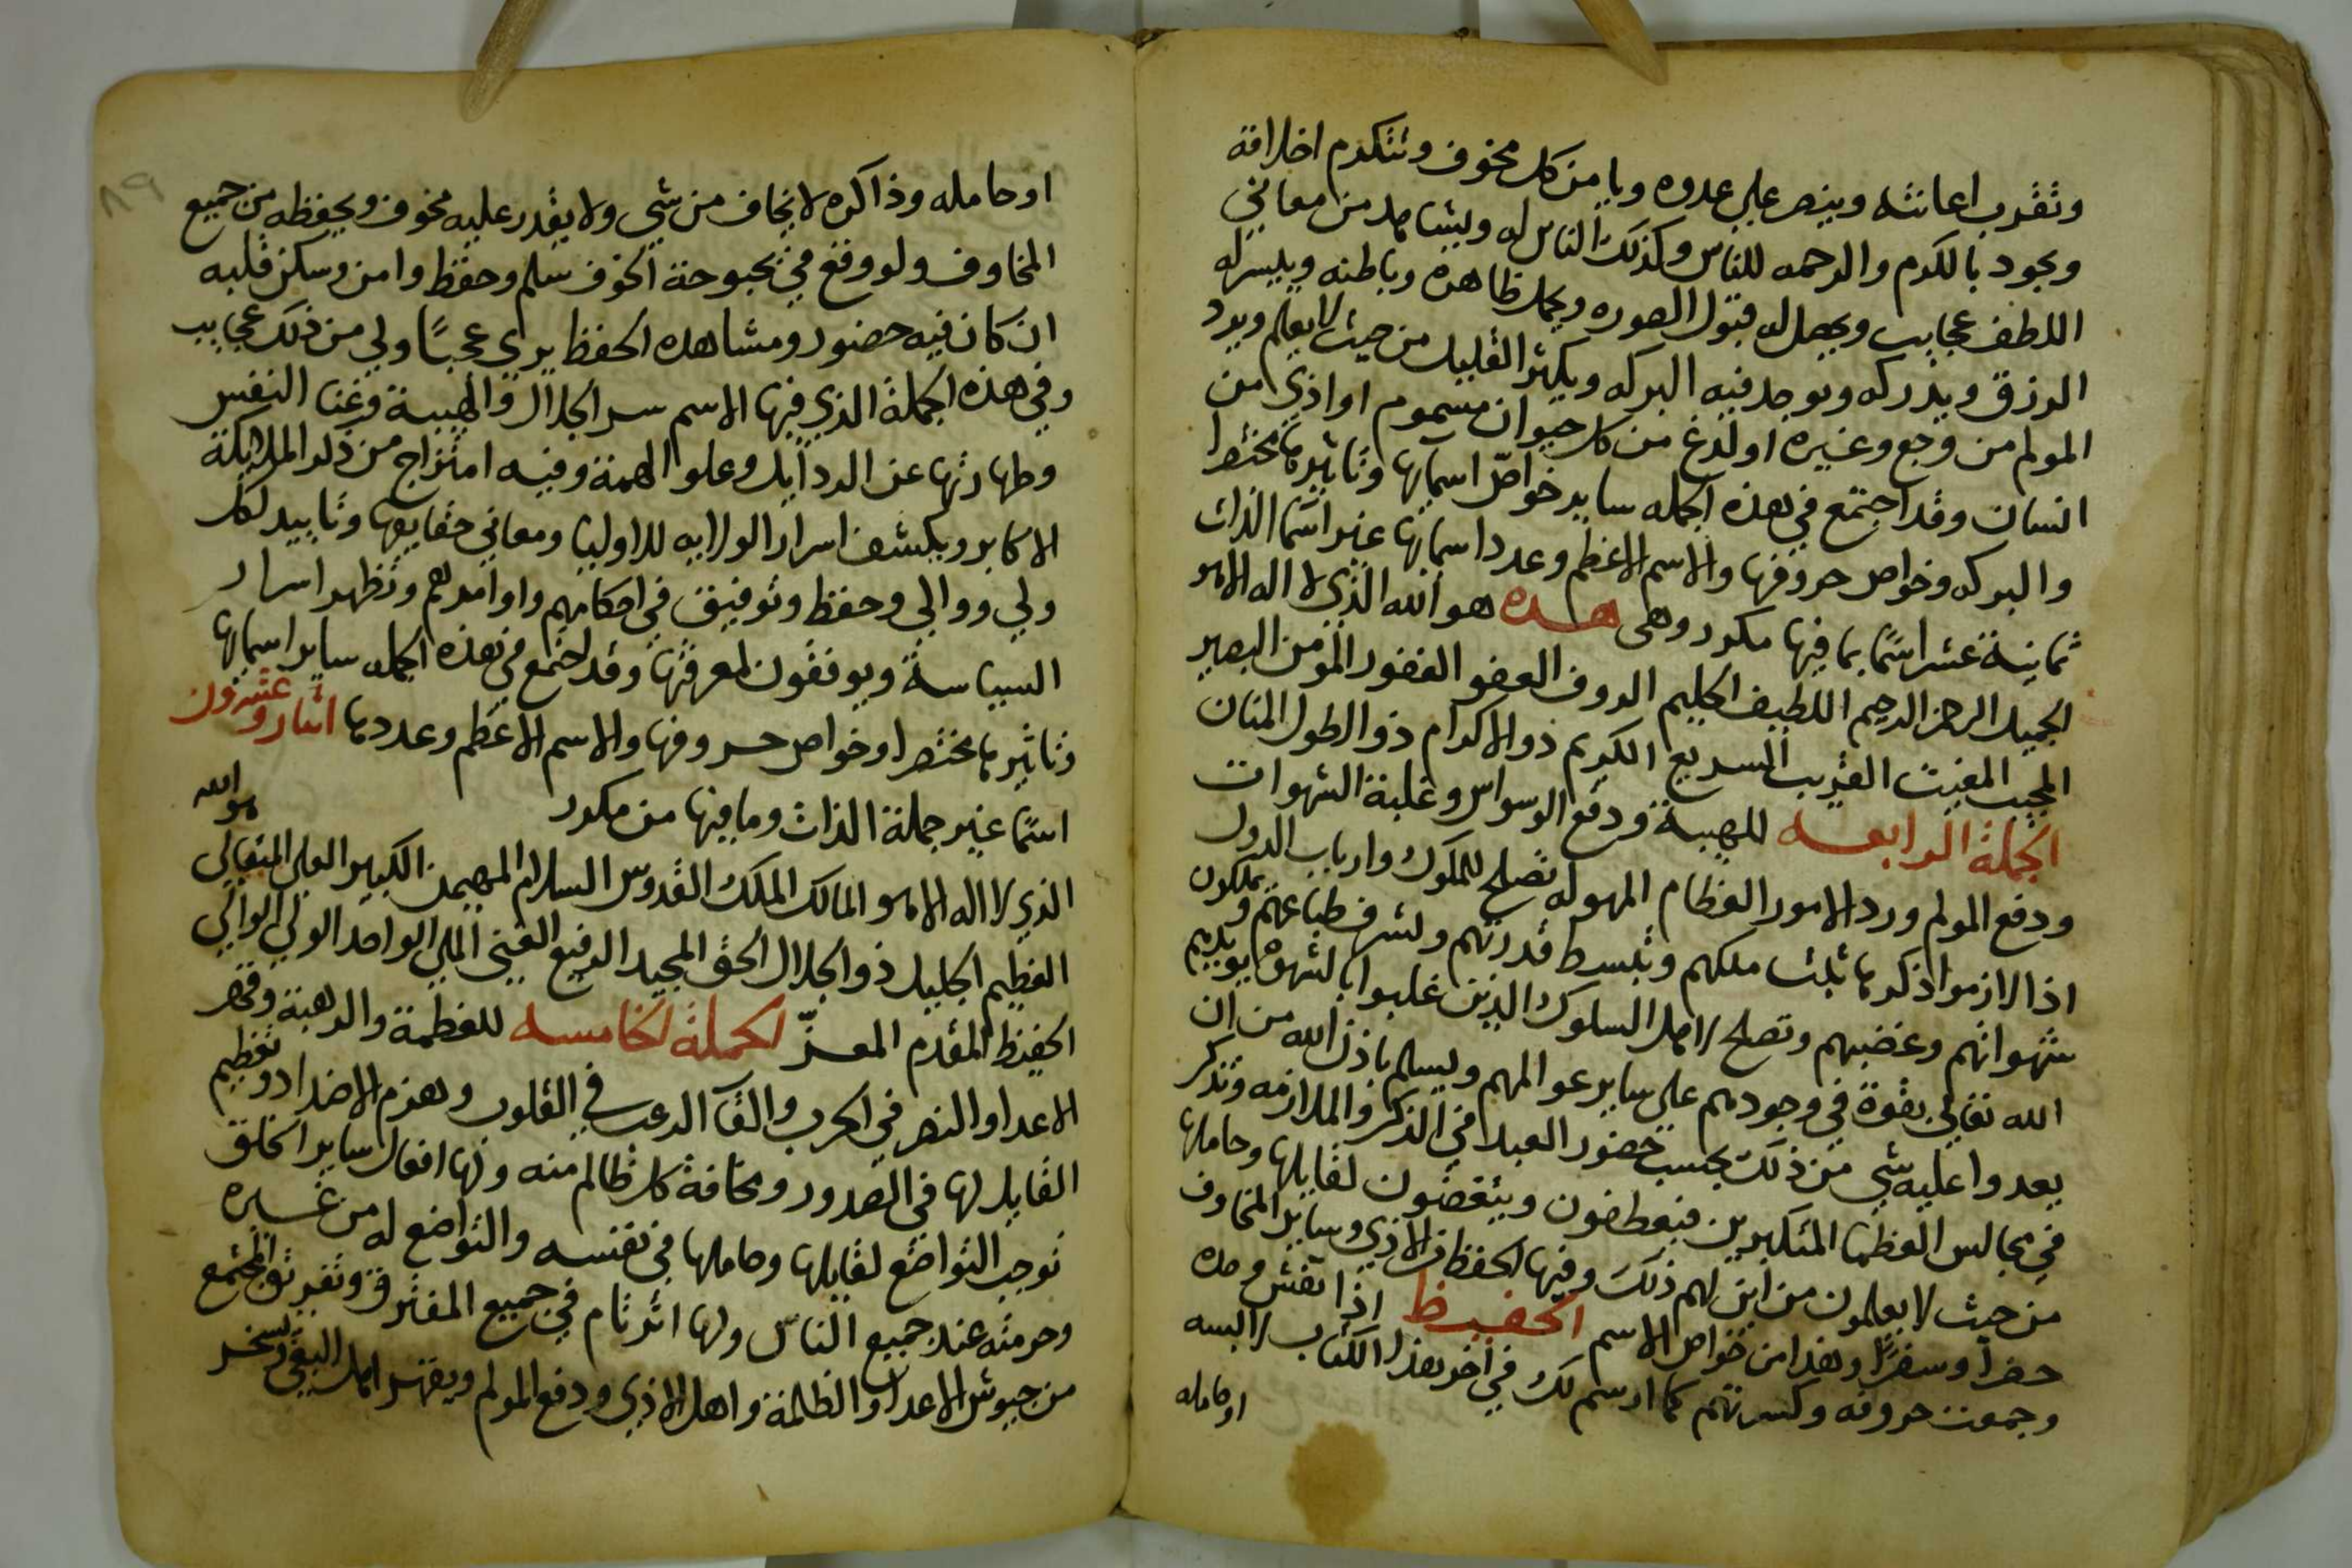 وتقرب اعانته وينصر على عدوه ويامن كل مخوف وتتكرم اخلاقه
ويجود بالكرم والرحمه للناس وكذلك الناس له ويشاهد من معاني
اللطف عجايب ويحصل له قبول الصوره ويجمل ظاهره وباطنه وييسر له
الرزق ويدركه ويوجد فيه البركه ويكثر القليل من حيث لا يعلم ويرد
المولم من وجع وغيره اولدغ من كل حيوان مسموم او اذي من
انسان وقد اجتمع في هذه الجمله ساير خواص اسمايها وتاثيرها مختصرا
والبركه وخواص حروفها والاسم الاعظم وعدد اسمايها غير اسما الذات
ثمانية عشر اسمًا بما فيها مكرر وهى هذه هو الله الذي لا اله الا هو
الجميل الرحمن الرحيم اللطيف الحليم الروف العفو الغفور المومن البصير
المجيب المغيث القريب السريع الكريم ذو الاكرام ذو الطول المنان
الجملة الرابعه للهيبة ودفع الوسواس وغلبة الشهوات
ودفع المولم ورد الامور العظام المهوله تصلح للملوك وارباب الدول
اذا لازموا ذكرها ثبت ملكهم وتبسط قدرتهم وتشرف طباعهم ويملكون
شهواتهم وغضبهم وتصلح لاهل السلوك الذين غلبوا بالشهوه يويدهم
الله تعالى بقوة في وجودهم علي ساير عوالمهم ويسلم باذن الله من ان
يعدوا عليه شي من ذلك بحسب حضور العبد في الذكر والملازمه وتذكر
في مجالس العظما المتكبرين فينعطفون وينقضون لقايلها وحاملها
من حيث لا يعلمون من اين لهم ذلك وفيها الحفظ من الاذي وساير المخاوف
حضرًا وسفرًا وهذا من خواص الاسم الحفيظ اذا نقش وحده
وجمعت حروفه وكسرتهم كما ارسم لك في اخر هذا الكتاب لابسه
او حامله
٨٩
او حامله وذاكره لا يخاف من شي ولا يقدر عليه مخوف ويحفظه من جميع
المخاوف ولو وقع في بحبوحة الخوف سلم وحفظ وامن وسكن قلبه
ان كان فيه حضور ومشاهده الحفظ يري عجبًا ولي من ذلك عجايب
وفي هذه الجملة الذي فيها الاسم سر الجلال والهيبة وغنا النفس
وطهارتها عن الردايل وعلو الهمة وفيه امتزاج من ذكر الملايكة
الاكابر ويكشف اسرار الولايه للاوليا ومعاني حقايقها وتاييد لكل
ولي ووالي وحفظ وتوفيق في احكامهم واوامرهم وتظهر اسرار
السياسة ويوفقون لمعرفتها وقد اجتمع في هذه الجمله ساير اسمايها
وتاثيرها مختصرا وخواص حروفها والاسم الاعظم وعددها اثنان وعشرون
اسمًا غير جملة الذات وما فيها من مكرر هو الله
الذي لا اله الا هو المالك الملك القدوس السلام المهيمن الكبير العلي المتعالي
العظيم الجليل ذو الجلال الحق المجيد الرفيع الغني الملي الواحد الولي الوالي
الحفيظ المقدم المعزّ الجملة الخامسه للعظمة والرهبة وقهر
الاعدا والنصر في الحرب والقآ الرعب في القلوب وهزم الاضداد وتعظيم
القايل لها في الصدور ومخافة كل ظالم منه ولها افعال ساير الخلق
توجب التواضع لقايلها وحاملها في نفسه والتواضع له من غيره
وحرمته عند جميع الناس ولها اثر تام في جميع المفترق وتفريق المجتمع
من جيوش الاعدا والظلمة واهل الاذي ودفع المولم ويقهر اهل البغي وتسخر